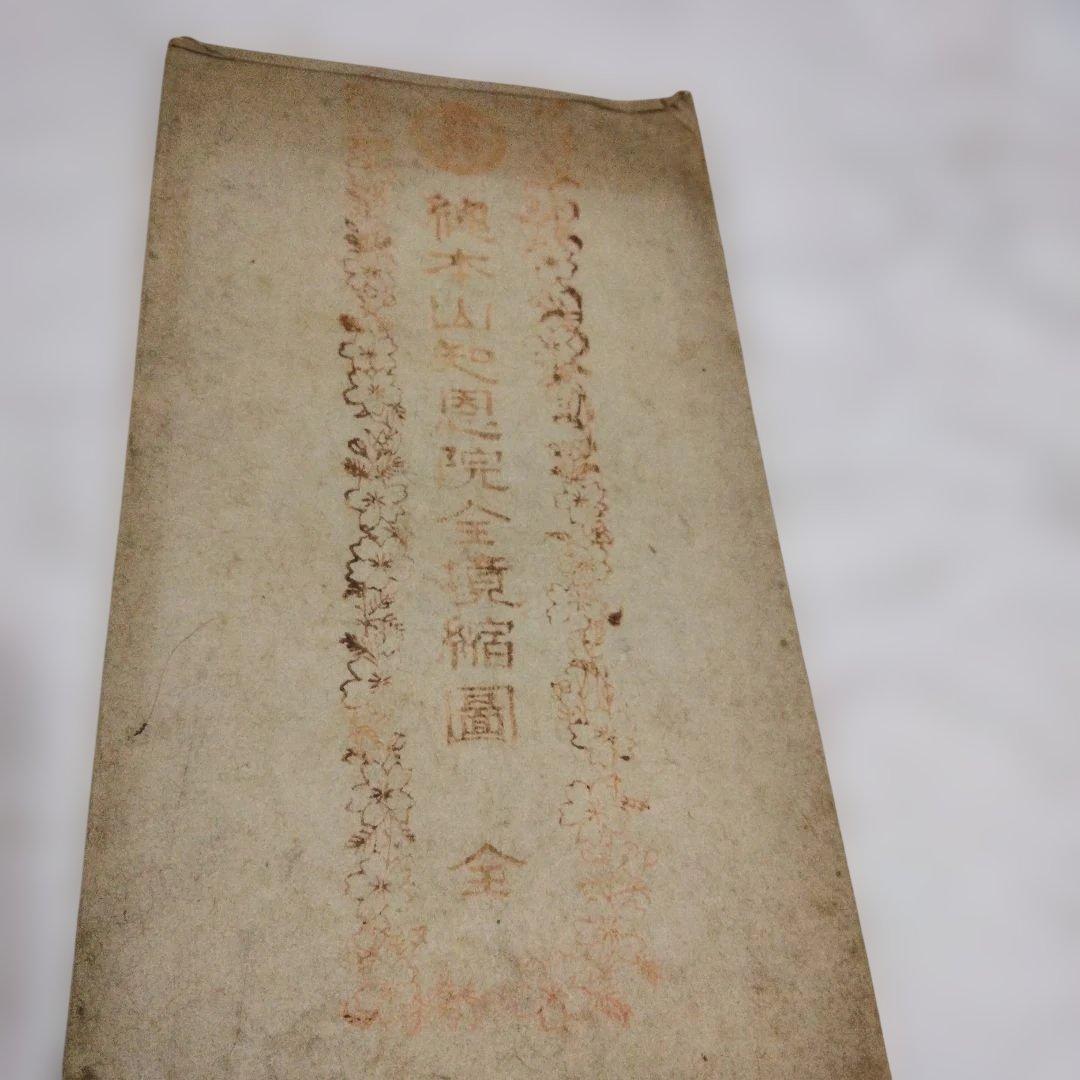 總本山知恩院全境縮圖 全